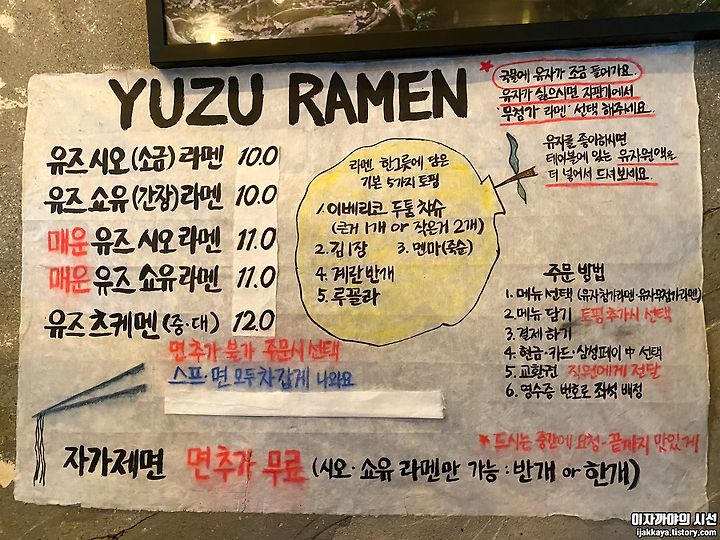 YUZU RAMEN
★국물에 유자가 조금 들어가요.
유자가 싫으시면 자판기에서
'무첨가 라멘' 선택 해주세요.
유자를 좋아하시면
테이블에 있는 유자원액을
더 넣어서 드셔보세요.
유즈 시오 (소금) 라멘 10.0
유즈 쇼유 (간장) 라멘 10.0
매운 유즈 시오 라멘 11.0
매운 유즈 쇼유 라멘 11.0
유즈 츠케멘 (중·대) 12.0
면추가 불가 주문시 선택
스프·면 모두 차갑게 나와요
라멘 한그릇에 담은
기본 5가지 토핑
1. 이베리코 두툼 챠슈
(큰거 1개 or 작은거 2개)
2. 김 1장 3. 멘마(죽순)
4. 계란 반개
5. 루꼴라
주문 방법
1. 메뉴 선택 (유자첨가라멘·유자무첨가라멘)
2. 메뉴 담기 토핑추가시 선택
3. 결제 하기
4. 현금·카드·삼성페이 中 선택
5. 교환권 직원에게 전달
6. 영수증 번호로 좌석 배정
★드시는 중간에 요청-끝까지 맛있게
자가제면 면추가 무료 (시오·쇼유 라멘만 가능 : 반개 or 한개)
이자까야의 시선
ijakkaya.tistory.com